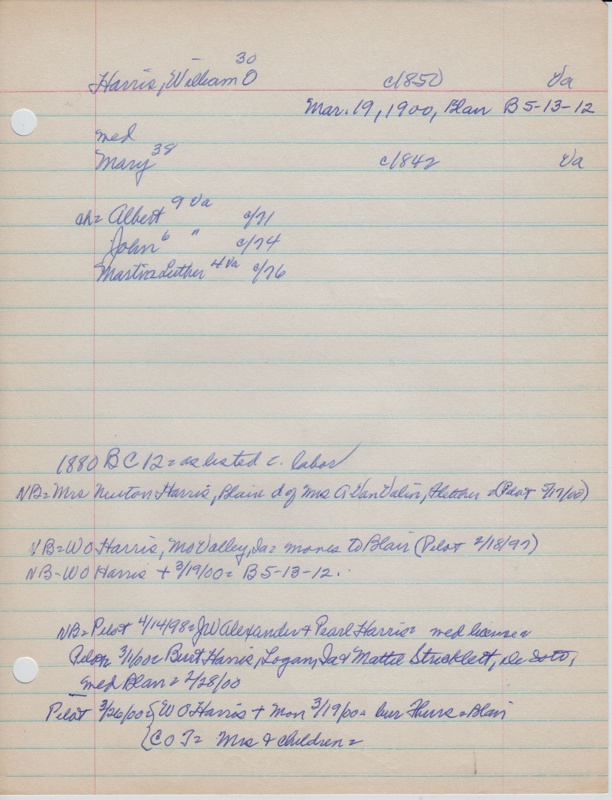 30
Harris, William O c/1850 Va
Mar. 19, 1900, Blair B 5-13-12
med
Mary 38 c/1842 Va
ch= Albert 9 Va c/71
John 6 " c/74
Martin Luther 4 Va c/76
1880 B C 12= as listed c. labor
NB= Mrs Newton Harris, Blair d of Mrs A Van Valin, Fletcher d (Pilot /17/00)
NB= W O Harris, Mo Valley, Ia= moves to Blair (Pilot 2/18/97)
NB- W O Harris + 3/19/00= B 5-13-12.
NB= Pilot 4/14/98= J W Alexander & Pearl Harris= med license=
Pilot 3/1/00= Burt Harris, Logan, Ia & Mattie Stricklett, De Soto,
med Blair= 2/28/00
Pilot 3/26/00= { W O Harris + Mon 3/19/00= bur Thurs= Blair
{ C O T= Mrs & children=